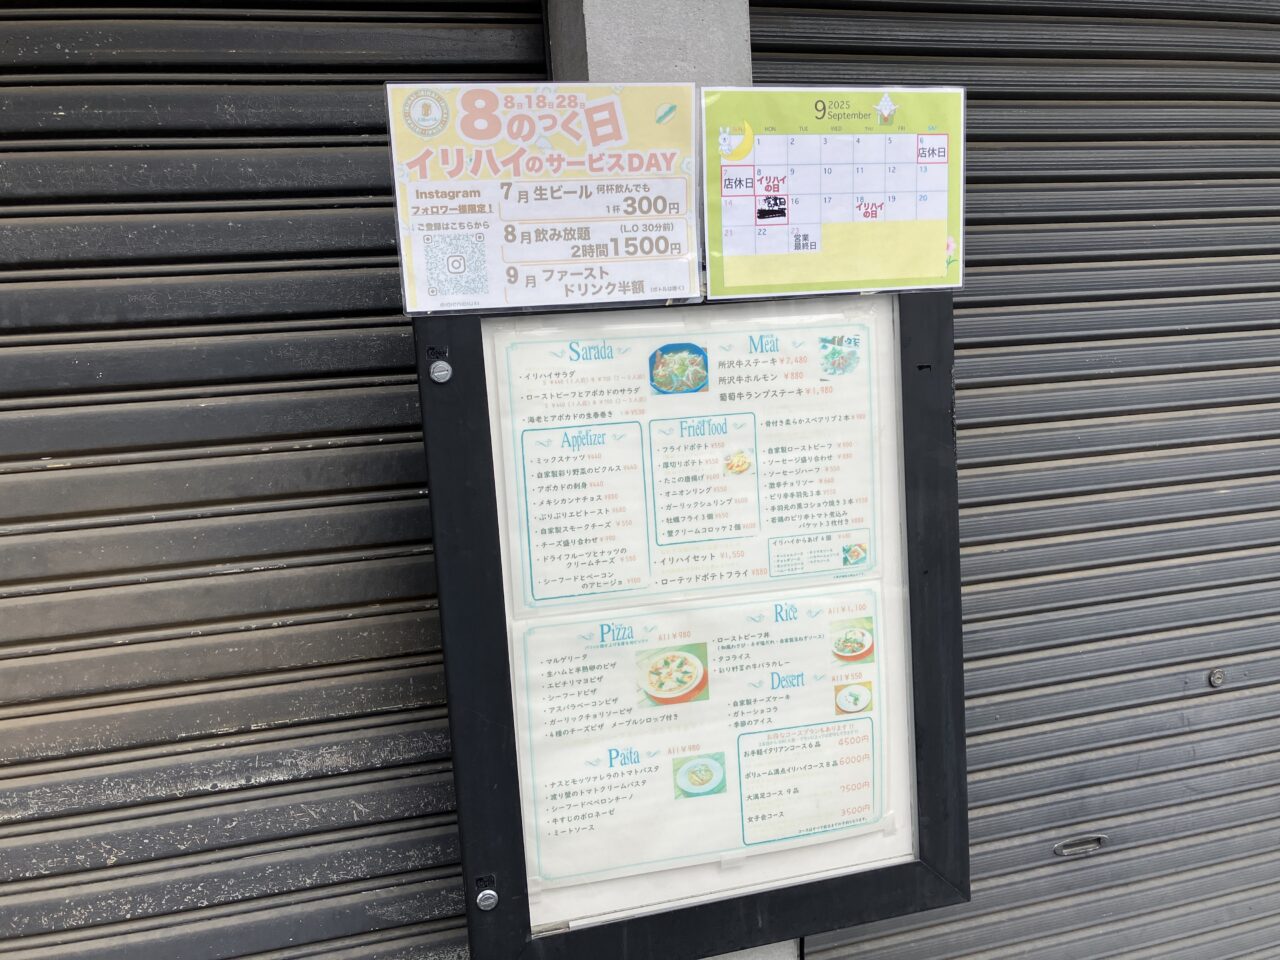 8日18日28日
8のつく日
イリハイのサービスDAY
Instagram
フォロワー様限定!
ご登録はこちらから
7月 生ビール 何杯飲んでも
1杯300円
8月 飲み放題 (L.O 30分前)
2時間1500円
9月 ファースト
ドリンク半額 (ボトルは除く)
9 2025
September
MON TUE WED THU FRI SAT
1 2 3 4 5 6
店休日
7 8 9 10 11 12 13
店休日 イリハイの日
14 16 17 18 19 20
イリハイの日
21 22 23
営業最終日
Sarada
・イリハイサラダ
・ローストビーフとアボカドのサラダ
・海老とアボカドの生春巻き
Meat
所沢牛ステーキ ¥2,480
所沢牛ホルモン ¥880
葡萄牛ランプステーキ ¥1,980
・骨付き柔らかスペアリブ2本 ¥980
Appetizer
・ミックスナッツ ¥440
・自家製彩り野菜のピクルス ¥440
・アボカドの刺身 ¥440
・メキシカンナチョス ¥880
・ぷりぷりエビトースト ¥680
・自家製スモークチーズ ¥550
・チーズ盛り合わせ ¥990
・ドライフルーツとナッツの
クリームチーズ ¥580
・シーフードとベーコン
のアヒージョ ¥980
Fried food
・フライドポテト ¥550
・厚切りポテト ¥550
・たこの唐揚げ ¥600
・オニオンリング ¥550
・ガーリックシュリンプ ¥600
・牡蠣フライ3個 ¥650
・蟹クリームコロッケ2個 ¥600
・イリハイセット ¥1,550
・ローテッドポテトフライ ¥880
・自家製ローストビーフ ¥800
・ソーセージ盛り合わせ ¥880
・ソーセージハーフ ¥550
・激辛チョリソー ¥660
・ピリ辛手羽先3本 ¥550
・手羽元の黒コショウ焼き3本 ¥550
・若鶏のピリ辛トマト煮込み
バケット3枚付き ¥880
イリハイからあげ4個 ¥680
Pizza All ¥980
・マルゲリータ
・生ハムと半熟卵のピザ
・エビチリマヨピザ
・シーフードピザ
・アスパラベーコンピザ
・ガーリックチョリソーピザ
・4種のチーズピザ メープルシロップ付き
Rice All ¥1,100
・ローストビーフ丼
・タコライス
・彩り野菜の牛バラカレー
Dessert All ¥550
・自家製チーズケーキ
・ガトーショコラ
・季節のアイス
Pasta All ¥980
・ナスとモッツァレラのトマトパスタ
・渡り蟹のトマトクリームパスタ
・シーフードペペロンチーノ
・牛すじのボロネーゼ
・ミートソース
お得なコースプランもあります!!
お手軽イタリアンコース6品 4500円
ボリューム満点イリハイコース8品 6000円
大満足コース 9品 7500円
女子会コース 3500円